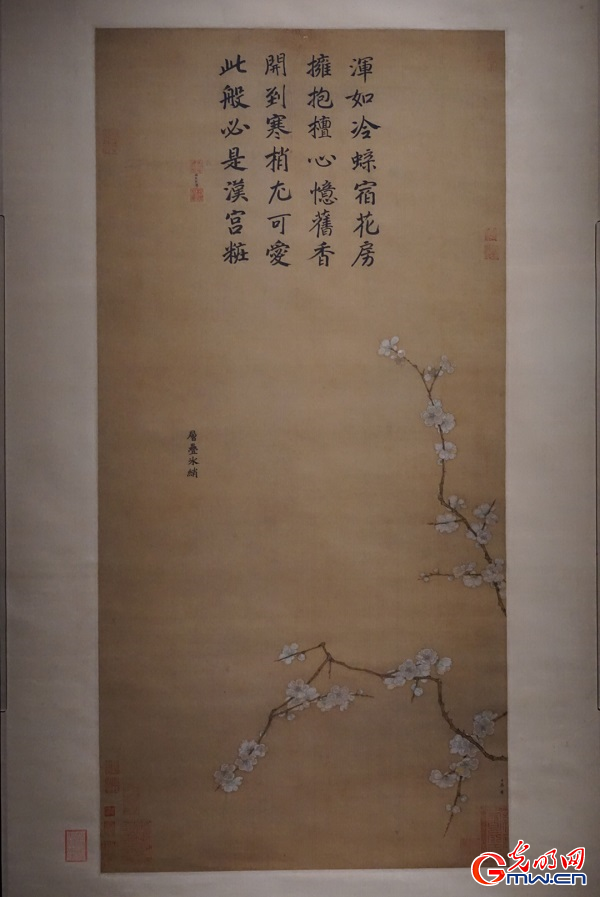 渾如冷蝶宿花房
擁抱檀心憶舊香
開到寒梢尤可愛
此般必是漢宮粧
層疊冰綃
光明网
GMW.cn